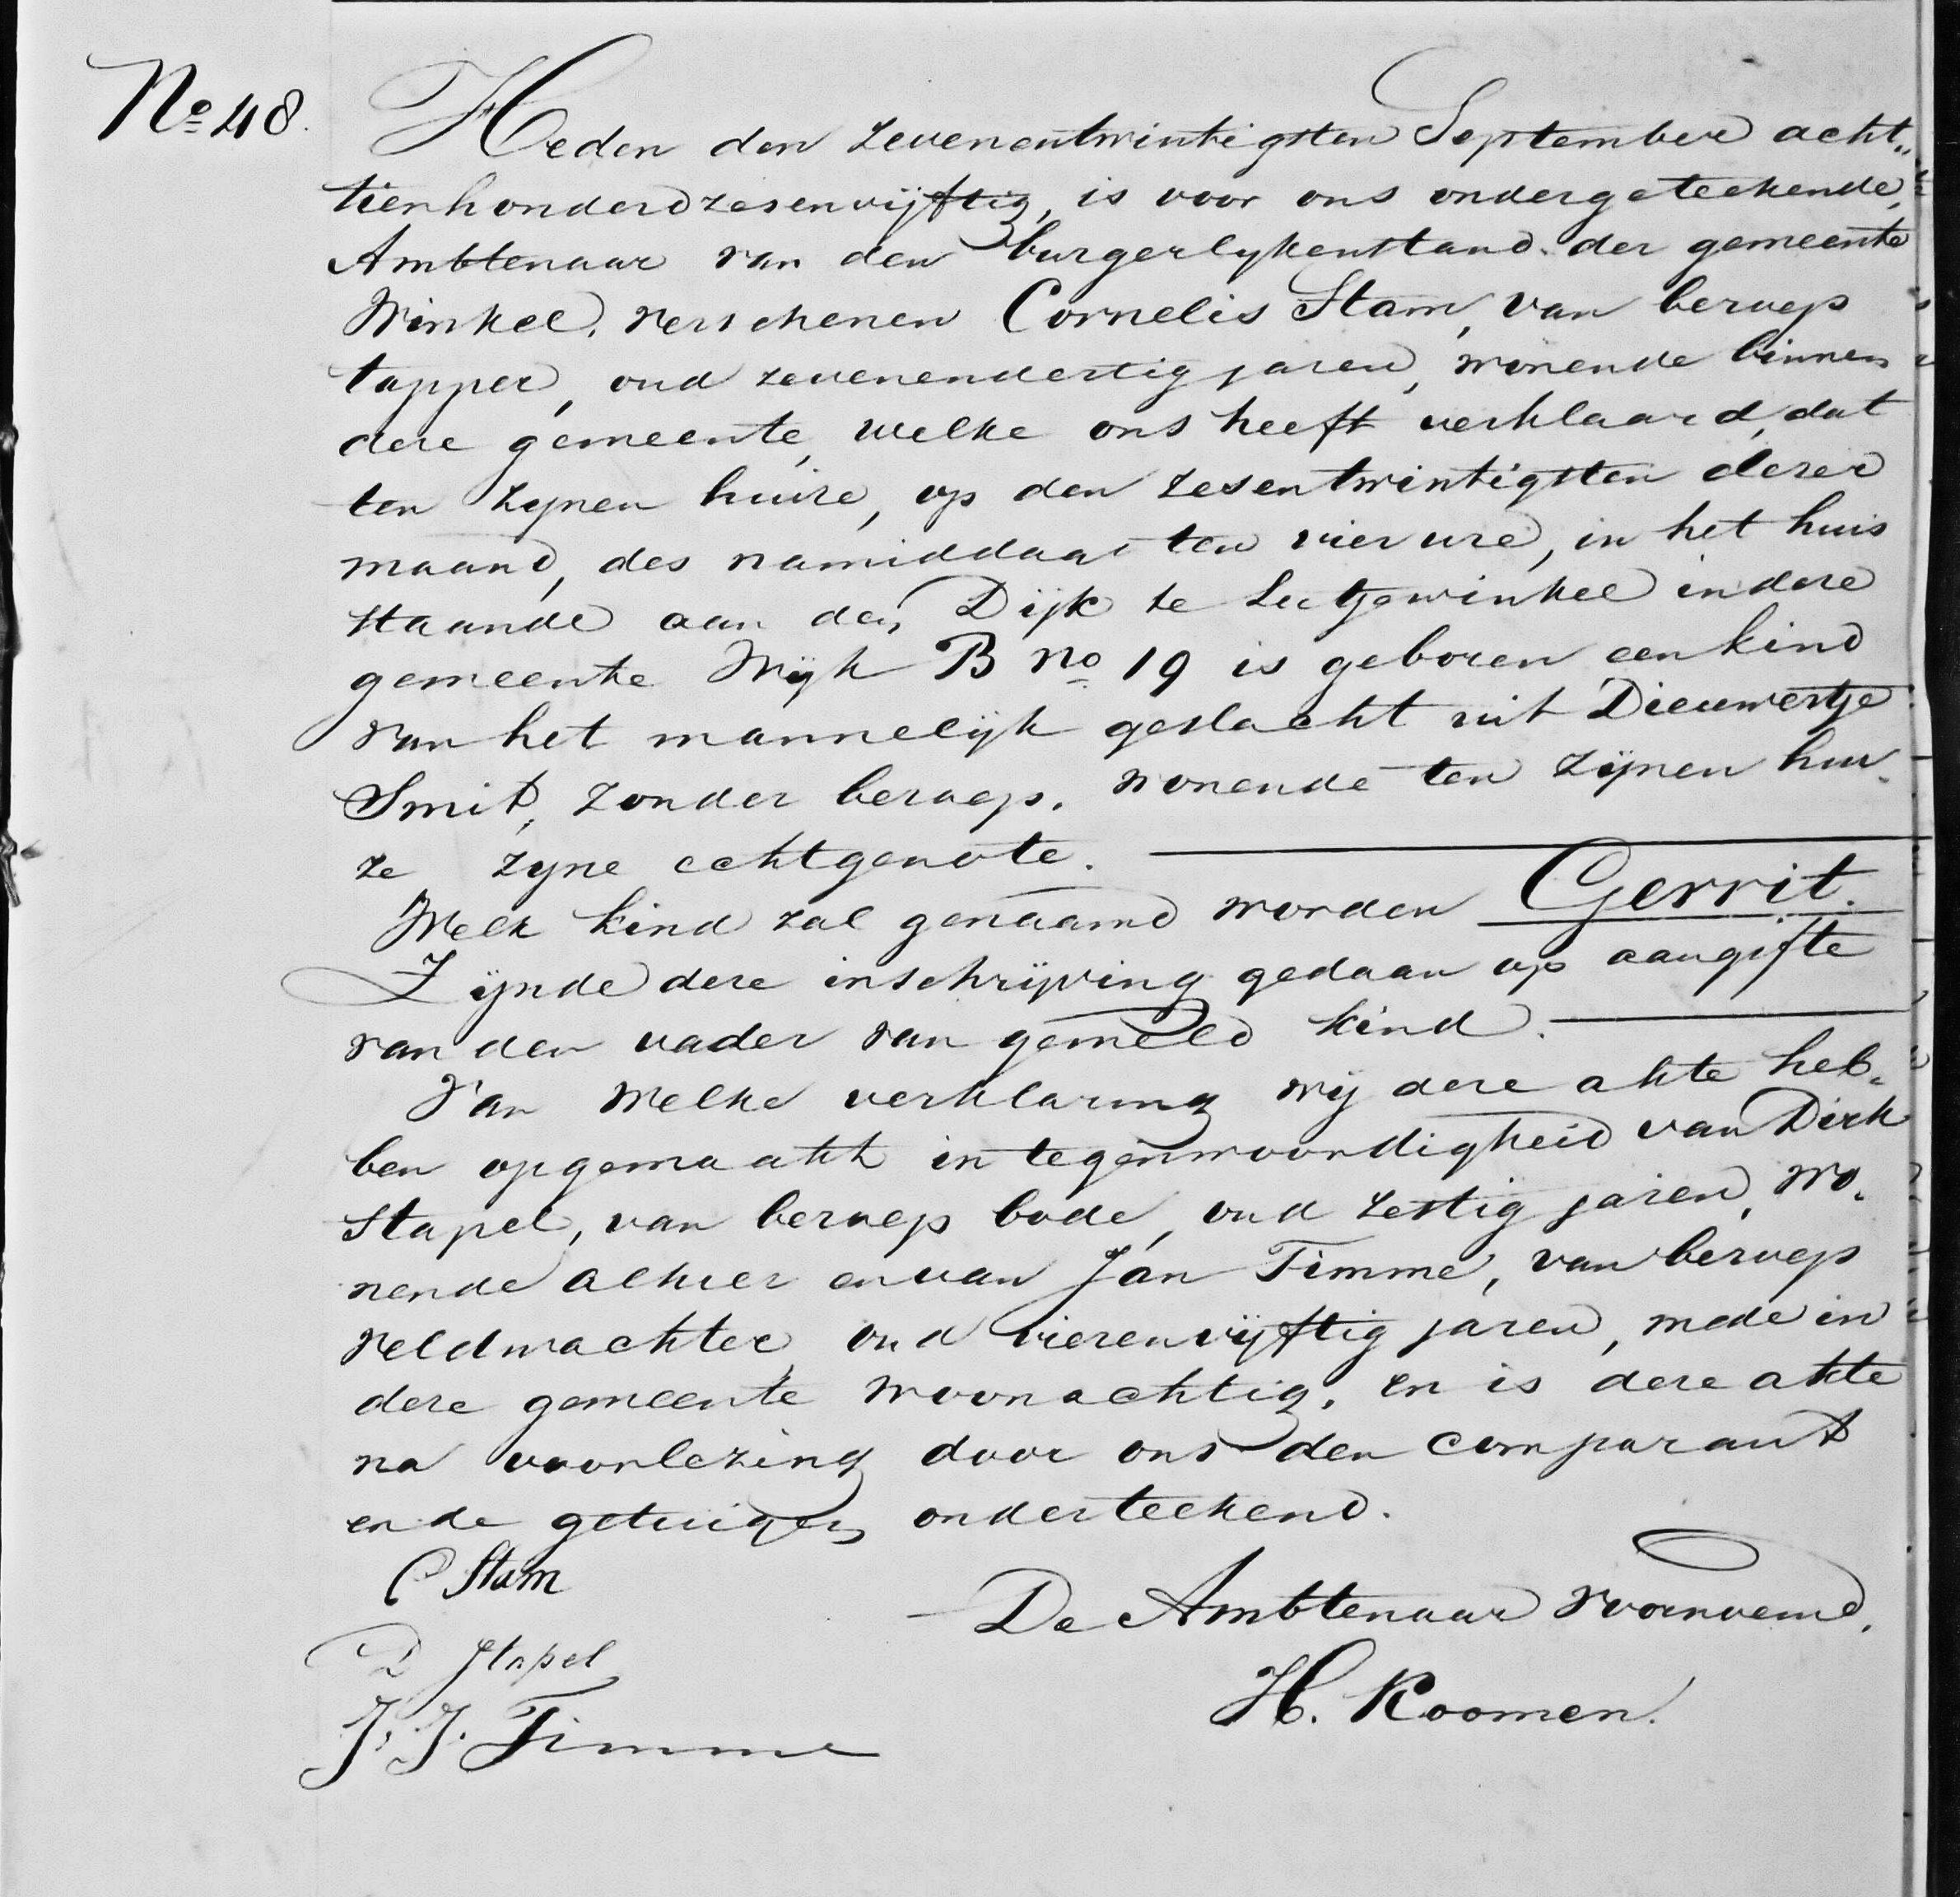 No 48.
Heden den zevenentwintigsten September acht„
tienhonderdzesenvijftig, is voor ons ondergeteekende,
Ambtenaar van den burgerlykenstand der gemeente
Winkel, verschenen Cornelis Stam, van beroep
tapper, oud zevenendertig jaren, wonende binnen
deze gemeente, welke ons heeft verklaard, dat
ten zynen huize, op den zesentwintigsten dezer
maand, des namiddags ten vier ure, in het huis
staande aan den Dijk te Lutjewinkel in deze
gemeente Wijk B No 19 is geboren een kind
van het mannelijk geslacht uit Dieuwertje
Smit, zonder beroep, wonende ten zijnen hui-
ze zyne echtgenote.
Welk kind zal genaamd worden Gerrit.
Zijnde deze inschrijving gedaan op aangifte
van den vader van gemeld kind.
Van welke verklaring wij deze akte heb-
ben opgemaakt in tegenwoordigheid van Dirk
Stapel, van beroep bode, oud zestig jaren, wo-
nende alhier en van Jan Timme, van beroep
veldwachter, oud vierenvijftig jaren, mede in
deze gemeente woonachtig, en is deze akte
na voorlezing door ons den comparant
en de getuigen onderteekend.
C Stam
De Ambtenaar voornoemd,
D Stapel
H. Koomen.
J. J. Timme